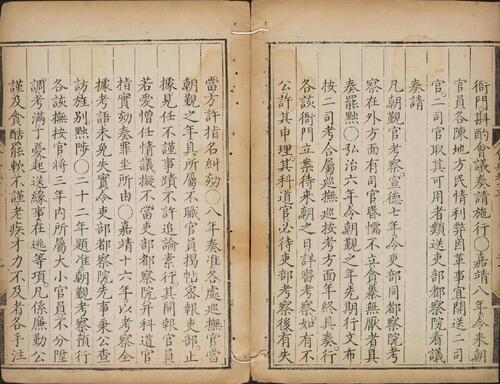 衙門斟酌會議奏請施行〇嘉靖 年令來朝
官員各陳地方民情利弊因革事宜開送二司
官二司官取其可用者類送吏部都察院看議
奏請
凡朝覲官考察宣德七年令吏部同都察院考
察在外方面有司官昏懦不立貪暴無厭者具
奏罷黜〇弘治六年令朝覲之年先期行文布
按二司考合屬巡撫巡按考方面年終具奏行
各該衙門立案待來朝之日詳審考察如有不
公許其申理其科道官必待吏部考察後有失
當方許指名糾劾〇八年奏准各處巡撫官當
朝覲之年具所屬不職官員揭帖密報吏部止
據見任不謹事蹟不許追論素行其開報官員
若愛憎任情議擬不當吏部都察院并科道官
指實劾奏罪坐所由〇嘉靖十六年以考察全
據考語未免失實令吏部都察院先事秉公查
訪旌別黜陟〇二十二年題准朝覲考察預行
各該撫按官將三年內所屬大小官員不分陞
調考滿丁憂起送緣事在逃等項凡係廉勤公
謹及貪酷罷軟不謹老疾才力不及者各手注